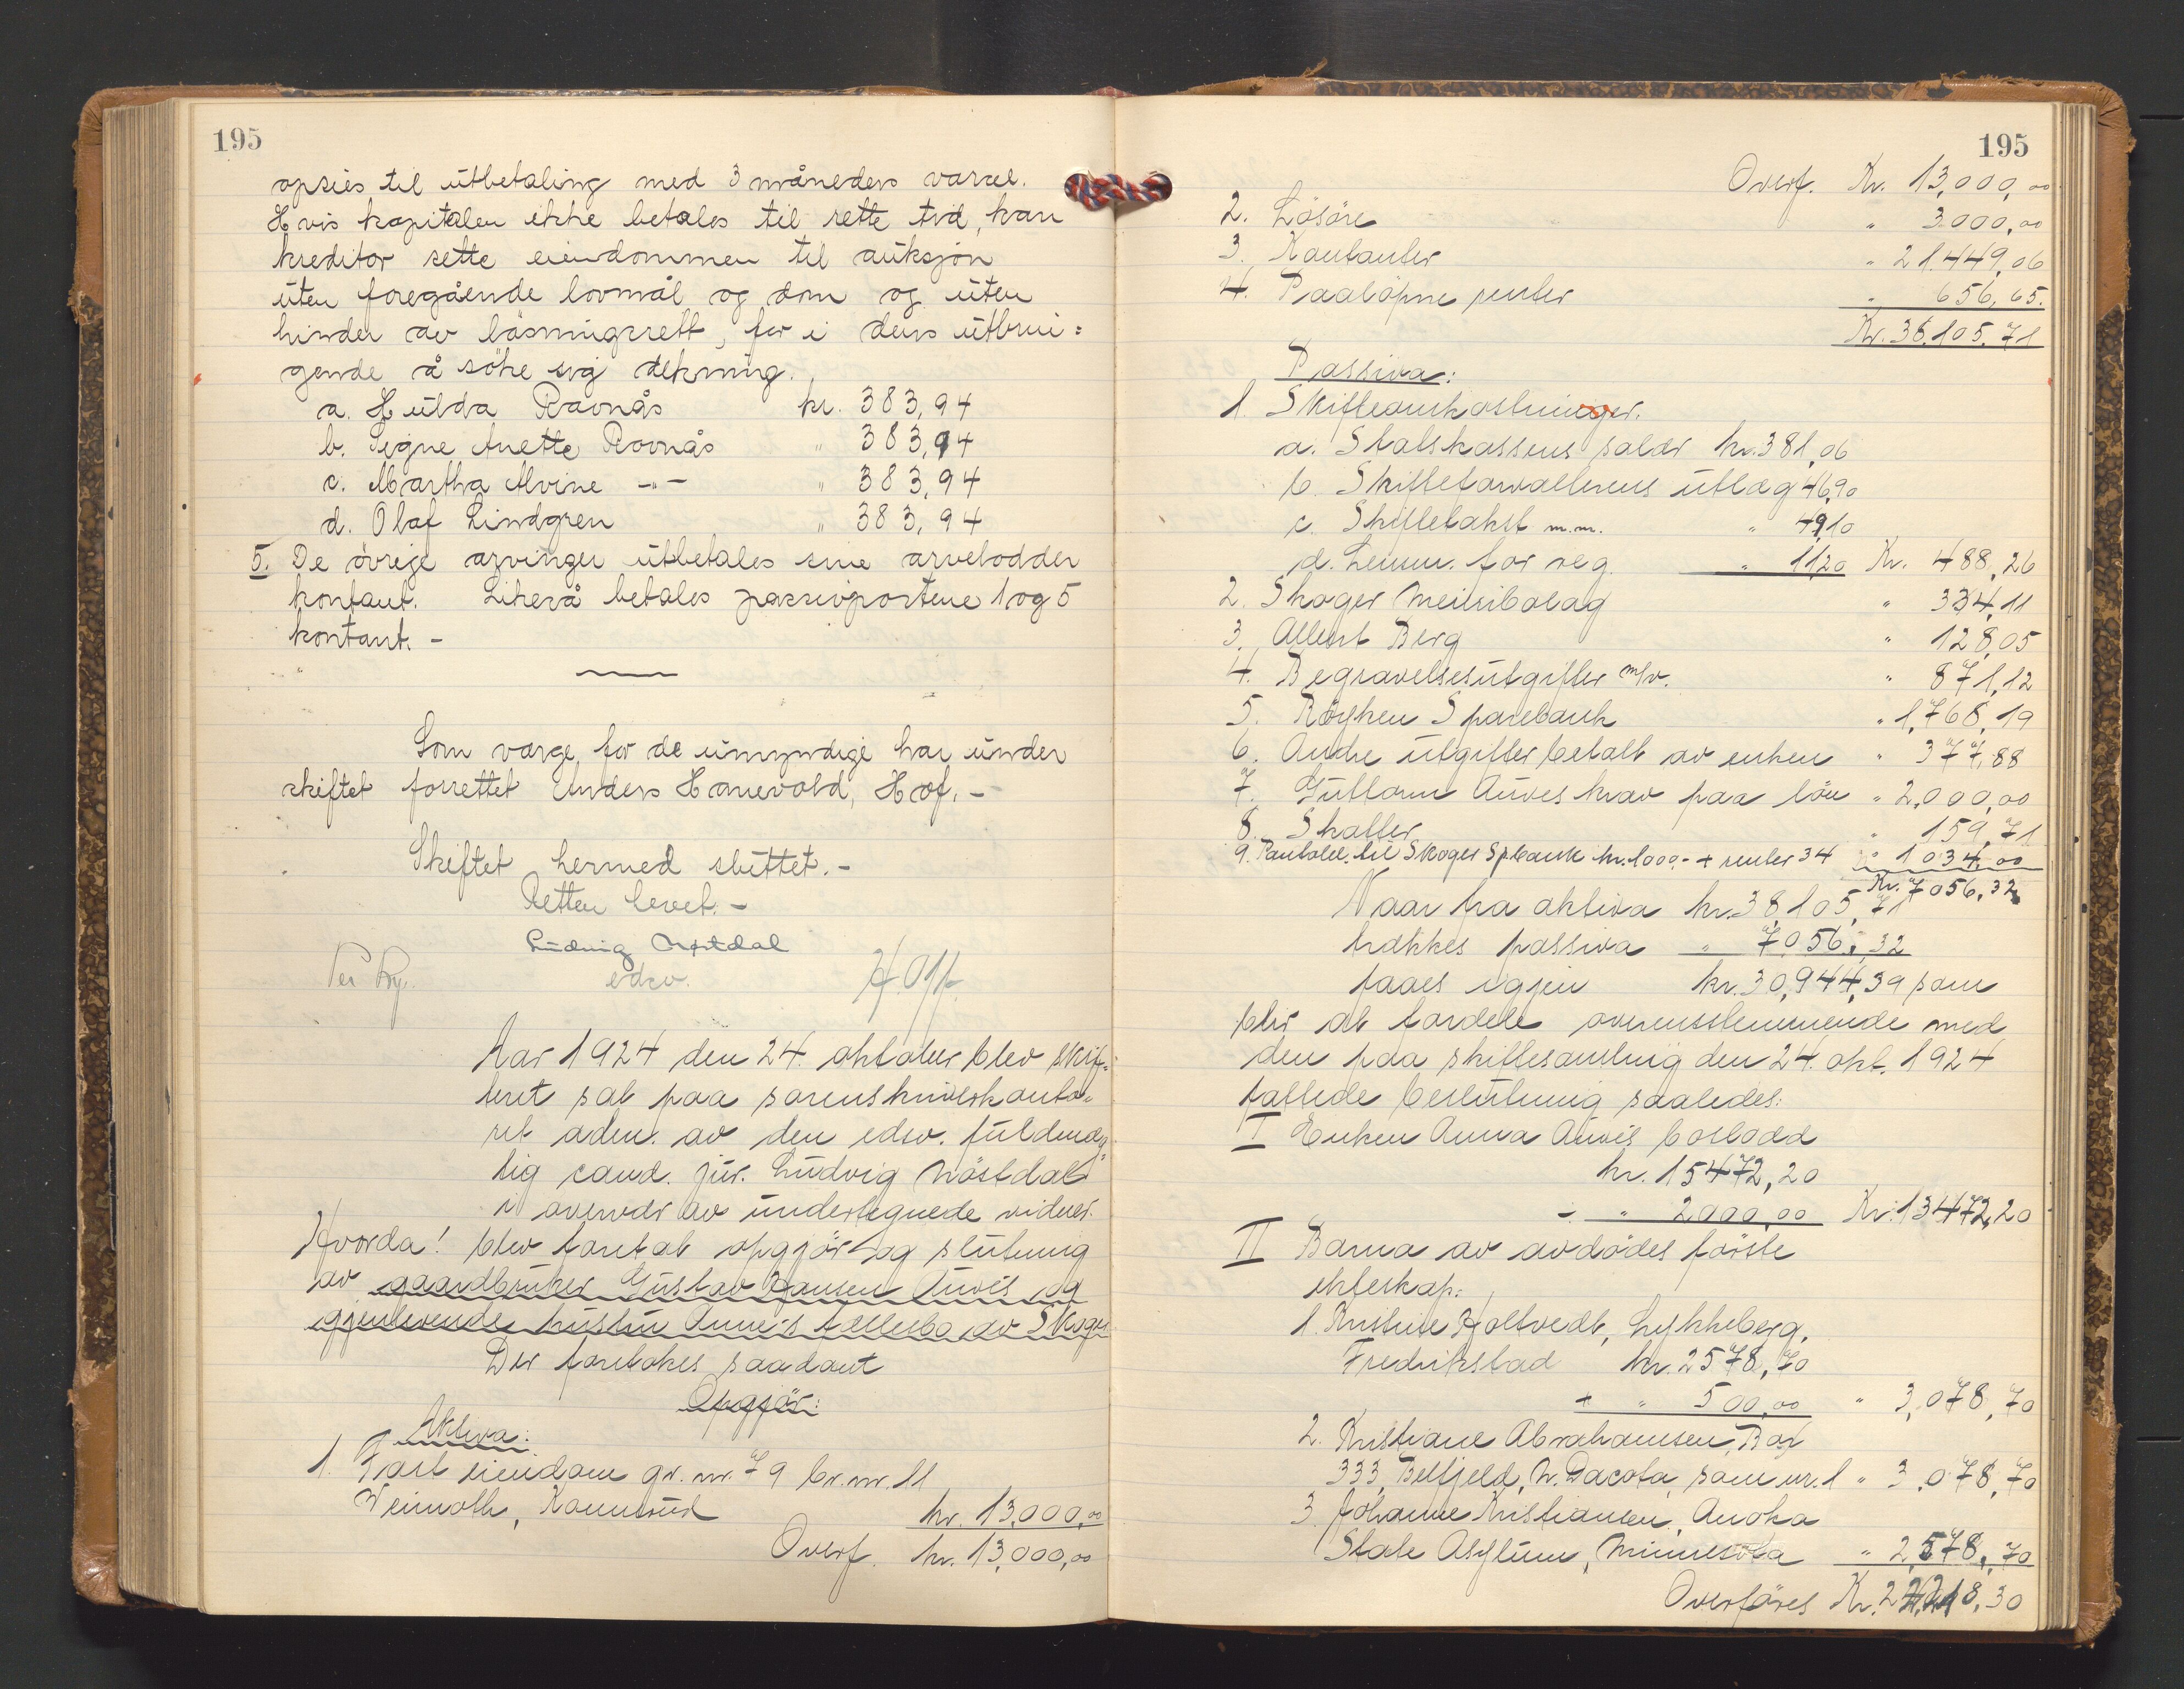 195
opsies til utbetaling med 3 måneders varsel.
Hvis kapitalen ikke betales til rette tid, kan
kreditor sette eiendommen til auksjon
uten foregående lovmål og dom og uten
hinder av løsningsrett, for i dens utbrin=
gende å söke sig dekning.
a. Hulda Ravnås kr. 383,94
b. Signe Anette Ravnås " 383,94
c. Martha Alvine -"- " 383,94
d. Olaf Lindgren " 383,94
5. De övrige arvinger utbetales sine arvelodder
kontant. Likeså betales passivpostene 1 og 5
kontant. -
Som verge for de umyndige har under
skiftet forrettet Anders Hanevold, Hof. -
Skiftet hermed sluttet. -
Retten hevet. -
Ludvig
edsv.
Aar 1924 den 24. oktober blev skif=
teret sat paa sorenskriverkonto=
ret adm. av den edsv. fuldmæg=
tig cand. jur. Ludvig Nöstdal
i overvær av undertegnede vidner.
Hvorda! blev foretat opgjör og slutning
av gaardbruker Gustav Hansen Auves og
gjenlevende hustru Anne's fællesbo av Skoger
Der foretokes saadant
Opgjör:
Aktiva:
1. Fast eiendom gr. nr. 79 br. nr. 11
kr. 13,000,00
Overf. kr. 13,000,00
195
Overf. Kr. 13,000,00
2. Lösöre " 3000,00
3. Kontanter " 21.449,06
4. Paalöpne renter " 656,65.
Kr. 38,105,71
Passiva:
1 Skifteomkostninger.
a. Statskassens salær kr. 381,06
b. Skifteforvalterens utlæg 46,90
c. Skiftetakst m.m. " 49,10
d. for reg. " 11,20 Kr. 488,26
2. Skoger Meieribolag " 334,11
3. Albert Berg " 128,05
4. Begravelsesutgifter m/v. " 871,12
5. Röyken Sparebank " 1,768,19
6. Andre utgifter betalt av enken " 377,88
7. Guttorm Auves krav paa lön " 2,000,00
8. Skatter " 159,71
9. Pantobl. til Skoger Spbank kr. 1000,- + renter 34 " 1034,00
Kr. 7056,32
Naar fra aktiva kr. 38,105,71
trækkes passiva " 7056,32
faaes igjen kr. 30,944,39 som
blir at fordele overensstemmende med
den paa skiftesamling den 24. okt. 1924
fattede beslutning saaledes:
I Enken Anna Auves boslodd
kr. 15472,20
÷ " 2000,00 Kr. 13472,20
II Barna av avdödes förste
ekteskap:
1. Kristine Holtvedt, Lykkeberg,
Fredrikstad kr. 2578,70
+ " 500,00 " 3,078,70
2. Kristiane Abrahamsen, Box
333, Belfjeld, N. Dacota, som nr. 1 " 3,078,70
3. Johanne Kristiansen, Anoka
State Asylum, Minnesota " 2,578,70
Overföres Kr.